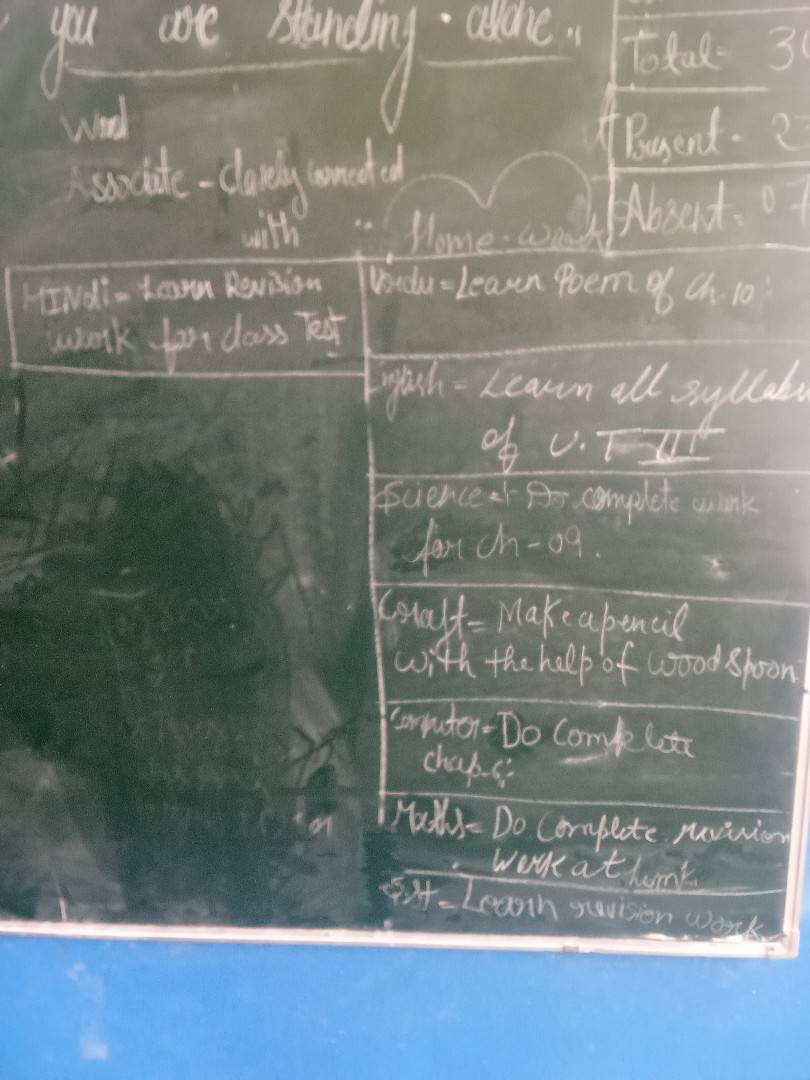 you are standing alone..
Word
Associate - closely connected
with
Total = 3
Present - 2
Absent = 07
Home-work
HINdi = Learn Revision
work for class Test
Uordu = Learn Poem of Ch-10
English = Learn all syllab
of U. T III
Science = Do complete work
for ch - 09.
Coraft = Make a pencil
with the help of wood spoon
Computer = Do Complete
chap-6
Maths = Do Complete revision
work at home.
SSt = Learn revision work